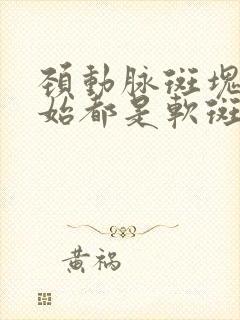 頚動脉斑塊
始都是軟斑
黃禍